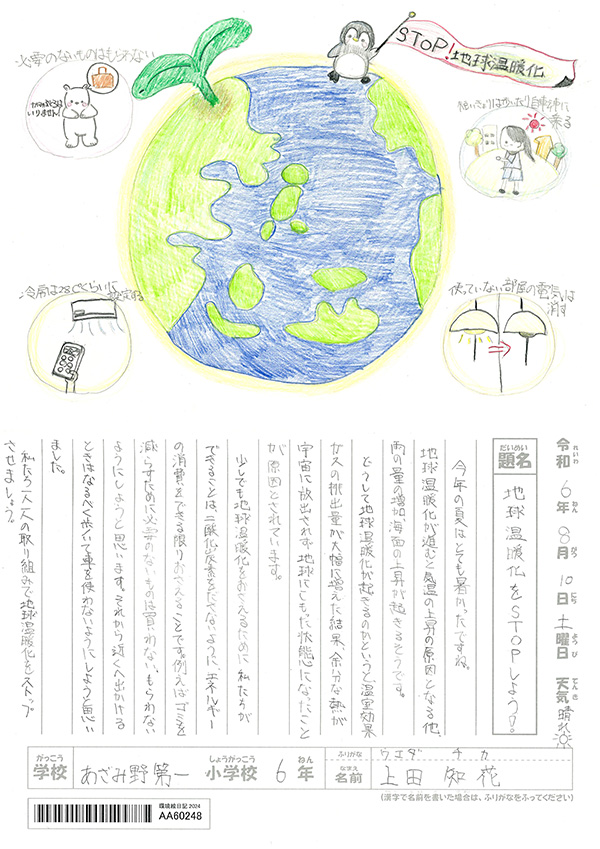 必要のないものはもらわない
いりません!
STOP!地球温暖化
短いきょりは歩いたり自転車に
乗る
冷房は28℃くらいに
設定する
使っていない部屋の電気は
消す
令和6年8月10日土曜日 天気 晴れ
れいわ ねん がつ にち ようび てんき
だいめい
題名
地球温暖化をSTOPしよう!
今年の夏はとても暑かったですね。
地球温暖化が進むと気温の上昇の原因となる他、
雨の量の増加、海面の上昇が起きるそうです。
どうして地球温暖化が起きるのかというと、温室効果
ガスの排出量が大幅に増えた結果、余分な熱が
宇宙に放出されず、地球にこもった状態になったこと
が原因とされています。
少しでも地球温暖化をおさえるために、私たちが
できることは、二酸化炭素をださないように、エネルギー
の消費をできる限りおさえることです。例えば、ゴミを
減らすために必要のないものは買わない、もらわない
ようにしようと思います。それから近くへ出かける
ときはなるべく歩いて車を使わないようにしようと思い
ました。
私たち一人一人の取り組みで地球温暖化をストップ
させましょう。
がっこう しょうがっこう ねん
学校 あざみ野第一 小学校 6年
ふりがな ウエダ チカ
なまえ
名前 上田 知花
(漢字で名前を書いた場合は、ふりがなをふってください)
環境絵日記 2024
AA60248